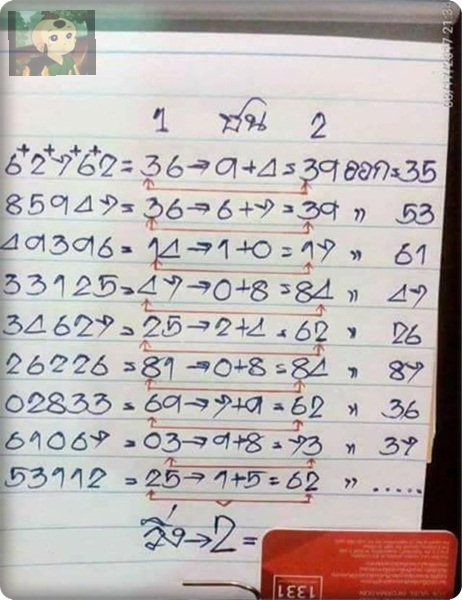 1 ชน 2
6+2+7+6+2 = 36→9+4=39 ออก=35
85947=36→6+7=39 " 53
49396=14→1+0=17 " 61
33125=47→0+8=84 " 47
34627=25→2+4=62 " 26
26226=81→0+8=84 " 87
02833=69→7+9=62 " 36
61067=03→9+8=73 " 37
53112=25→1+5=62 " .....
วิ่ง→2=
1331